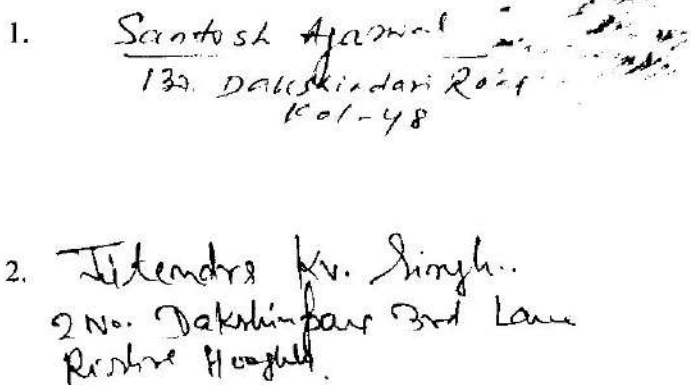 1. Santosh Agarwal
132 Dakshindari Road
Kol-48
2. Jitendra Kr. Singh..
2 No. Dakshinpara 3rd Lane
Rishra Hooghly.